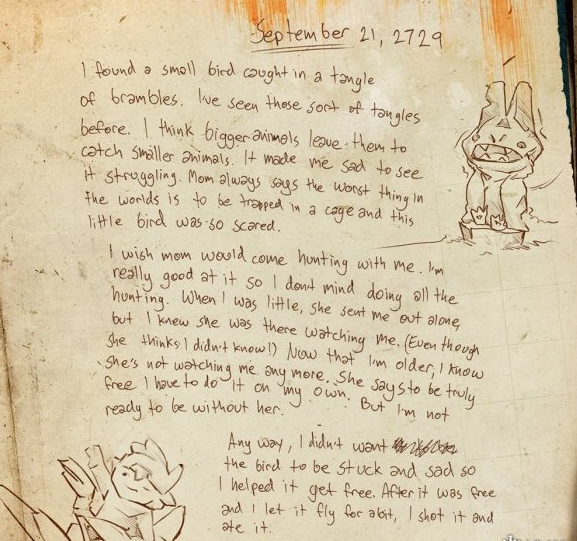 September 21, 2729
I found a small bird caught in a tangle
of brambles. I've seen those sort of tangles
before. I think bigger animals leave them to
catch smaller animals. It made me sad to see
it struggling. Mom always says the worst thing in
the worlds is to be trapped in a cage and this
little bird was so scared.
I wish mom would come hunting with me. I'm
really good at it so I don't mind doing all the
hunting. When I was little, she sent me out alone,
but I knew she was there watching me. (Even though
she thinks I didn't know!) Now that I'm older, I know
she's not watching me any more. She says to be truly
free I have to do it on my own. But I'm not
ready to be without her.
Any way, I didn't want
the bird to be stuck and sad so
I helped it get free. After it was free
and I let it fly for a bit, I shot it and
ate it.